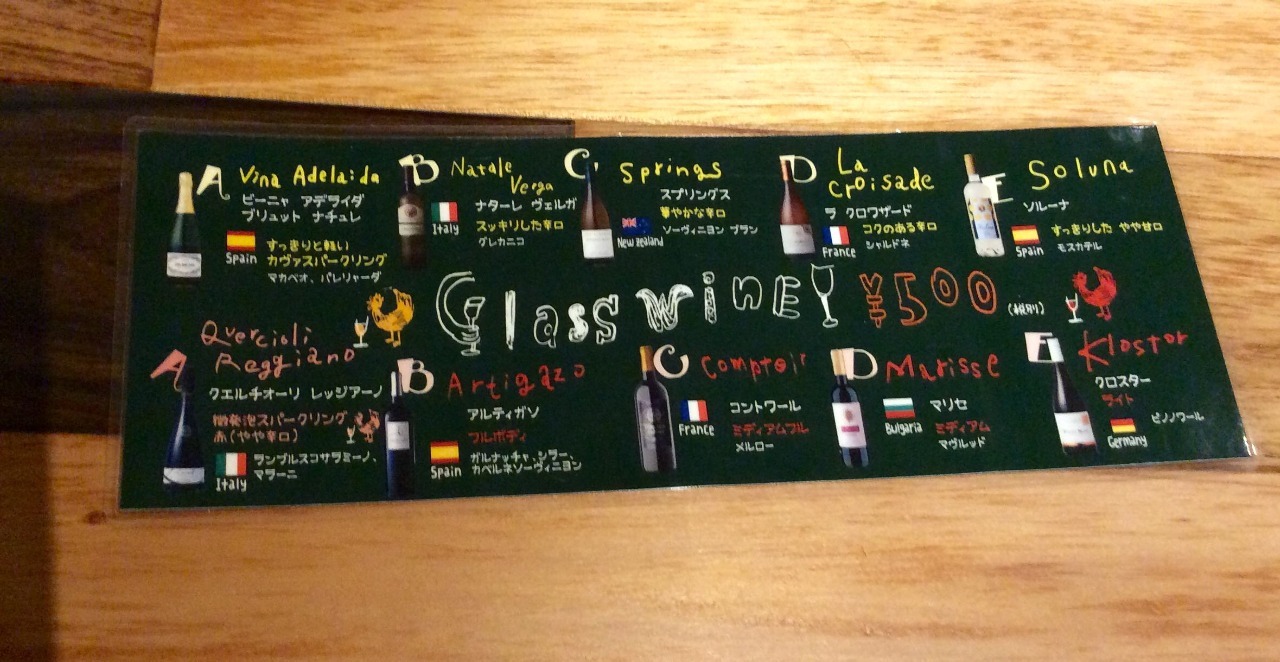 A Vina Adelaida
ビーニャ アデライダ
ブリュット ナチュレ
Spain
すっきりと軽い
カヴァスパークリング
マカベオ、パレリャーダ
B Natale
Verga
ナターレ ヴェルガ
Italy
スッキリした辛口
グレカニコ
C Springs
スプリングス
華やかな辛口
New zealand
ソーヴィニヨン ブラン
D La
Croisade
ラ クロワザード
France
コクのある辛口
シャルドネ
E Soluna
ソルーナ
Spain
すっきりした やや甘口
モスカテル
Glass wine! ¥500
(税別)
A Quercioli
Reggiano
クエルチオーリ レッジアーノ
微発泡スパークリング
赤(やや辛口)
Italy
ランブルスコサラミーノ、
マラーニ
B Artigazo
アルティガソ
フルボディ
Spain
ガルナッチャ、シラー、
カベルネソーヴィニヨン
C Comptoir
コントワール
France
ミディアムフル
メルロー
D Marisse
マリセ
Bulgaria
ミディアム
マヴルッド
E Klostor
クロスター
ライト
Germany
ピノノワール